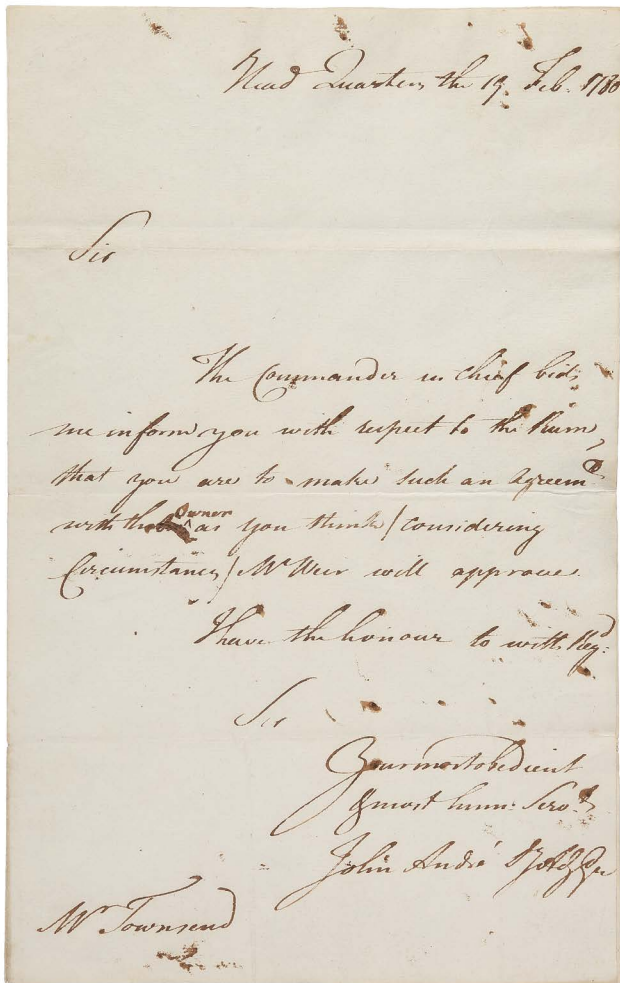 Head Quarters the 19. Feb. 1780
Sir
The Commander in Chief bids
me inform you with respect to the Rum,
that you are to make such an agreemt
with the Owner as you think / considering
Circumstances / Mr Weir will approve.
I have the honour to with Regd:
Sir
Your most obedient
& most hum: Servt
John André
Mr Townsend